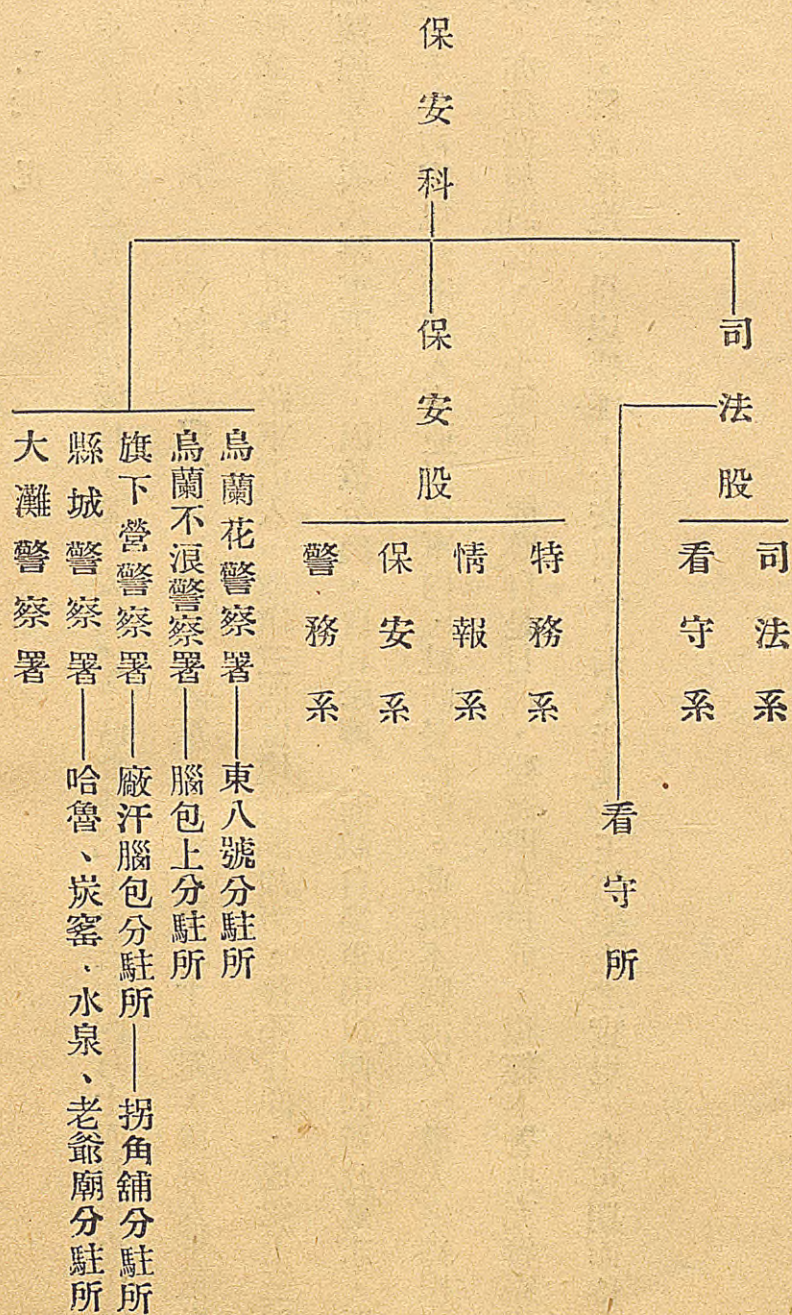 保安科
司法股
司法系
看守系
看守所
保安股
特務系
情報系
保安系
警務系
烏蘭花警察署——東八號分駐所
烏蘭不浪警察署——腦包上分駐所
旗下營警察署——廠汗腦包分駐所——拐角舖分駐所
縣城警察署——哈魯、炭窰、水泉、老爺廟分駐所
大灘警察署